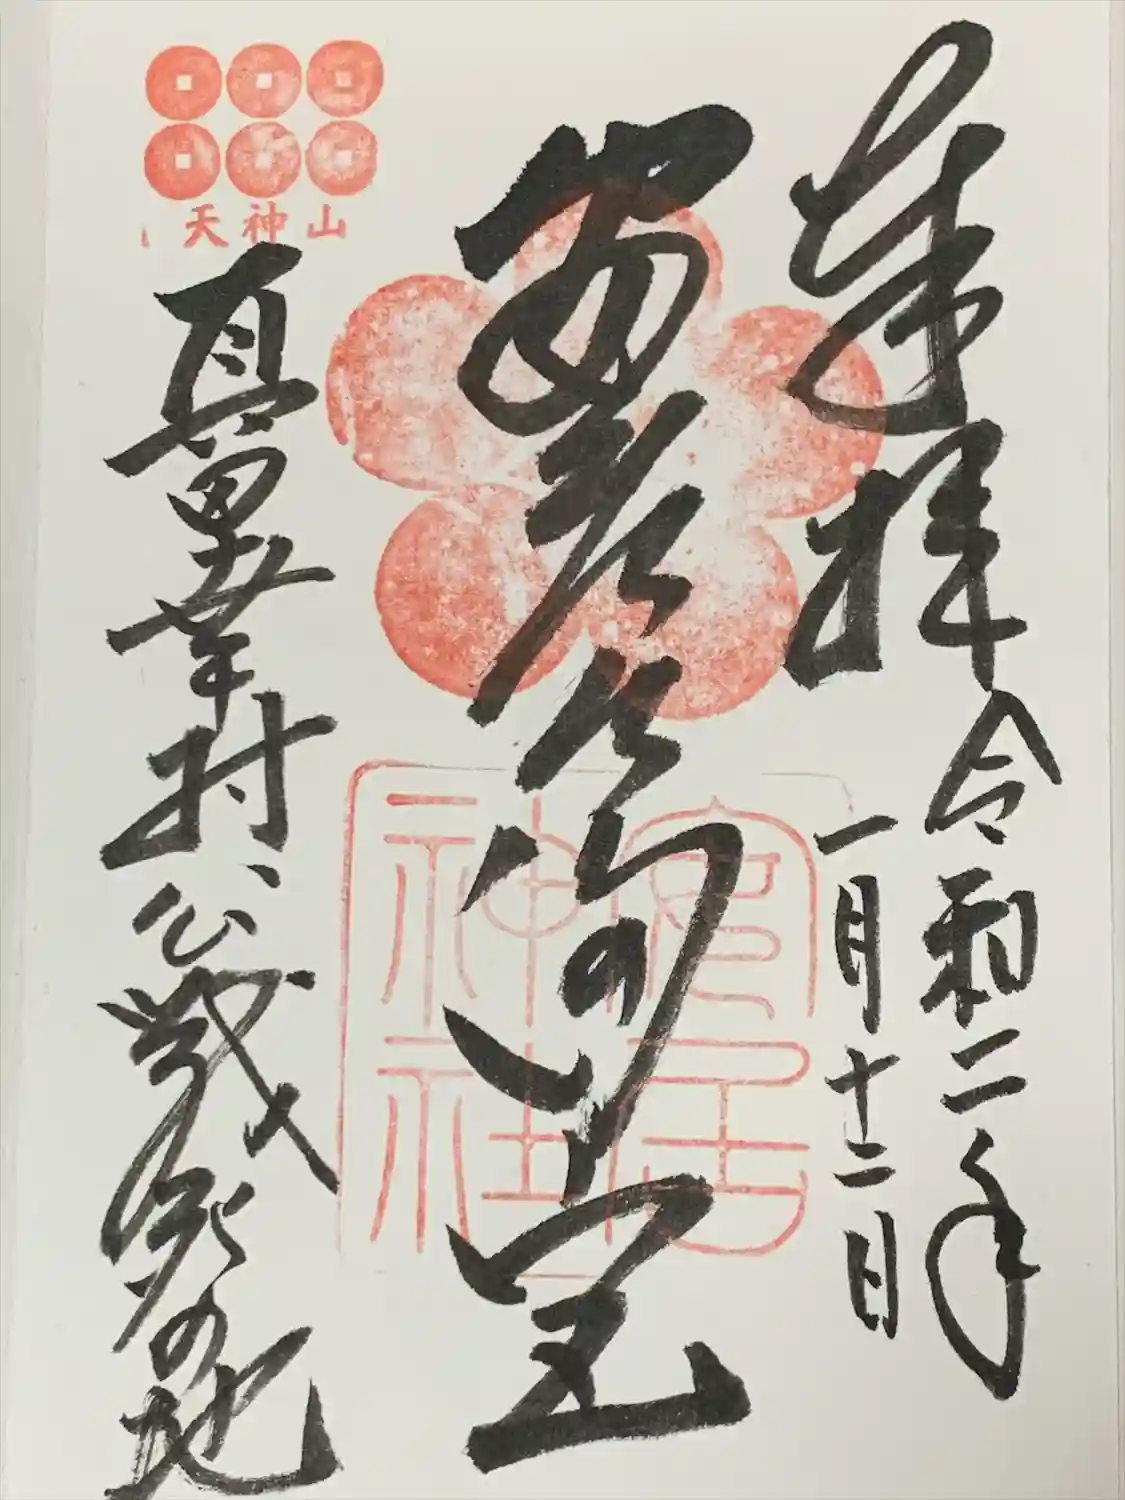 奉拝
令和二年
一月十二日
安居
安居神社
天神山
真田幸村公戦歿の地